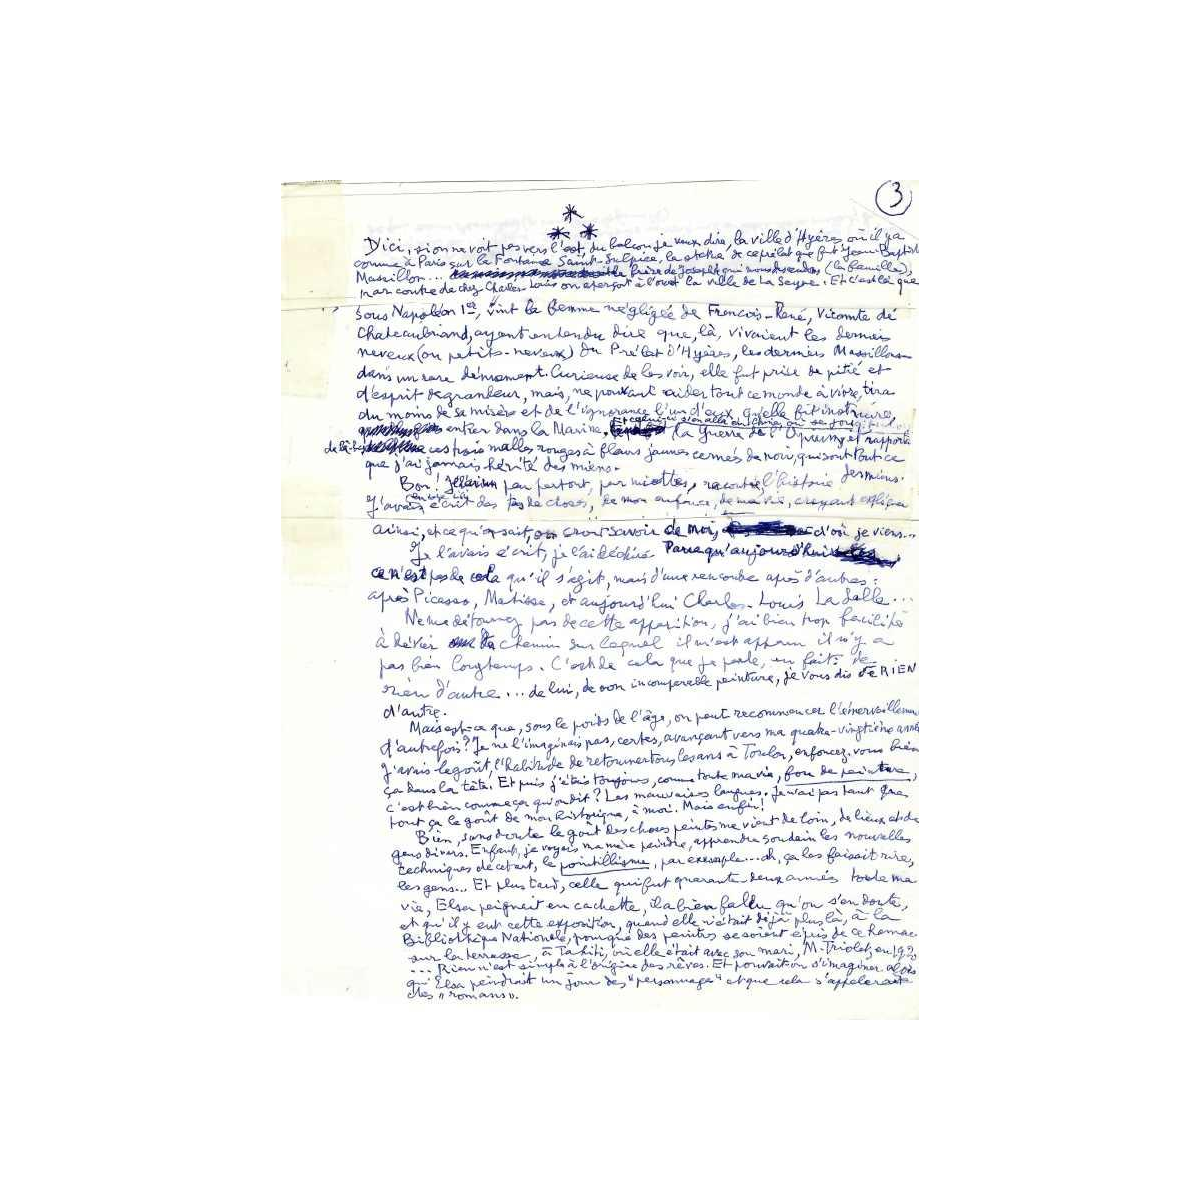 3
D'ici, si on ne voit pas vers l'est, du balcon je veux dire, la ville d'Hyères où il y a
comme à Paris sur la Fontaine Saint-Sulpice, la statue de ce prélat que fut Jean-Baptiste
Massillon... de Joseph qui nous descendons (la famille),
par contre de chez Charles-Louis on aperçoit à l'ouest la ville de La Seyne. Et c'est là que
sous Napoléon 1er, vint la femme négligée de François-René, Vicomte de
Chateaubriand, ayant entendu dire que, là, vivaient les derniers
neveux (ou petits-neveux) du Prélat d'Hyères, les derniers Massillon
dans un rare dénuement. Curieuse de les voir, elle fut prise de pitié et
d'esprit de grandeur, mais, ne pouvant aider tout ce monde à vivre, tira
du moins de sa misère et de l'ignorance l'un d'eux qu'elle fit instruire,
entrer dans la Marine. Et celui-ci s'en alla en Chine où se
la Guerre de l'Opium, et rapporta
de là-bas ces trois malles rouges à fleurs jaunes cernées de noir, qui sont tout ce
que j'ai jamais hérité des miens.
Bon! J'ai un peu partout, par miettes, raconté l'histoire des miens.
J'avais écrit des tas de choses, de mon enfance, de ma vie, croyant expliquer
ainsi, et ce qu'on sait, ou croit savoir de moi, d'où je viens...
Je l'avais écrit, je l'ai déchiré. Parce qu'aujourd'hui
ce n'est pas de cela qu'il s'agit, mais d'une rencontre après d'autres:
après Picasso, Matisse, et aujourd'hui Charles-Louis La Salle...
Ne me détournez pas de cette apparition, j'ai bien trop facilité
à dévier du chemin sur lequel il m'est apparu il n'y a
pas bien longtemps. C'est de cela que je parle, en fait. De
rien d'autre... de lui, de son incomparable peinture, je vous dis de RIEN
d'autre.
Mais est-ce que, sous le poids de l'âge, on peut recommencer l'émerveillement
d'autrefois? Je ne l'imaginais pas, certes, avançant vers ma quatre-vingtième année
J'avais le goût, l'habitude de retourner tous les ans à Toulon, enfoncez-vous bien
ça dans la tête. Et puis j'étais toujours, comme toute ma vie, fou de peinture,
c'est bien comme ça qu'on dit? Les mauvaises langues. Je n'ai pas tant que
tout ça le goût de mon historique, à moi. Mais enfin!
Bien, sans doute le goût des choses peintes me vient de loin, de lieux et de
gens divers. Enfant, je voyais ma mère peindre, apprendre soudain les nouvelles
techniques de cet art, le pointillisme, par exemple... ah, ça les faisait rire,
les gens... Et plus tard, celle qui fut quarante-deux années toute ma
vie, Elsa peignait en cachette, il a bien fallu qu'on s'en doute,
et qu'il y eut cette exposition, quand elle n'était déjà plus là, à la
Bibliothèque Nationale, pour que des peintres se soient épris de ce hamac
sur la terrasse, à Tahiti, où elle était avec son mari, M. Triolet, en 1920
... Rien n'est simple à l'origine des rêves. Et pouvait-on s'imaginer alors
qu'Elsa peindrait un jour des "personnages" et que cela s'appellerait
des "romans".